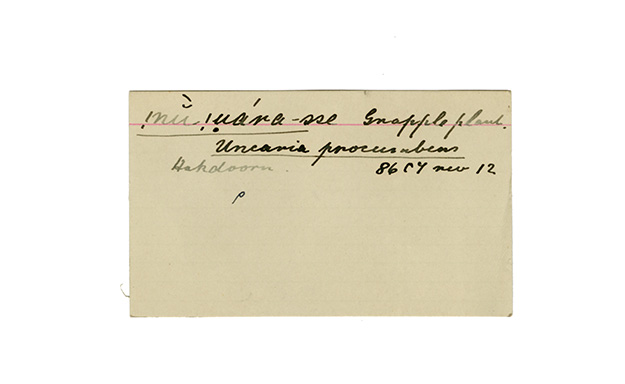 !nù,!uára-sse Grapple plant.
Uncaria procumbens
Hakdoorn.
86 CY rev 12